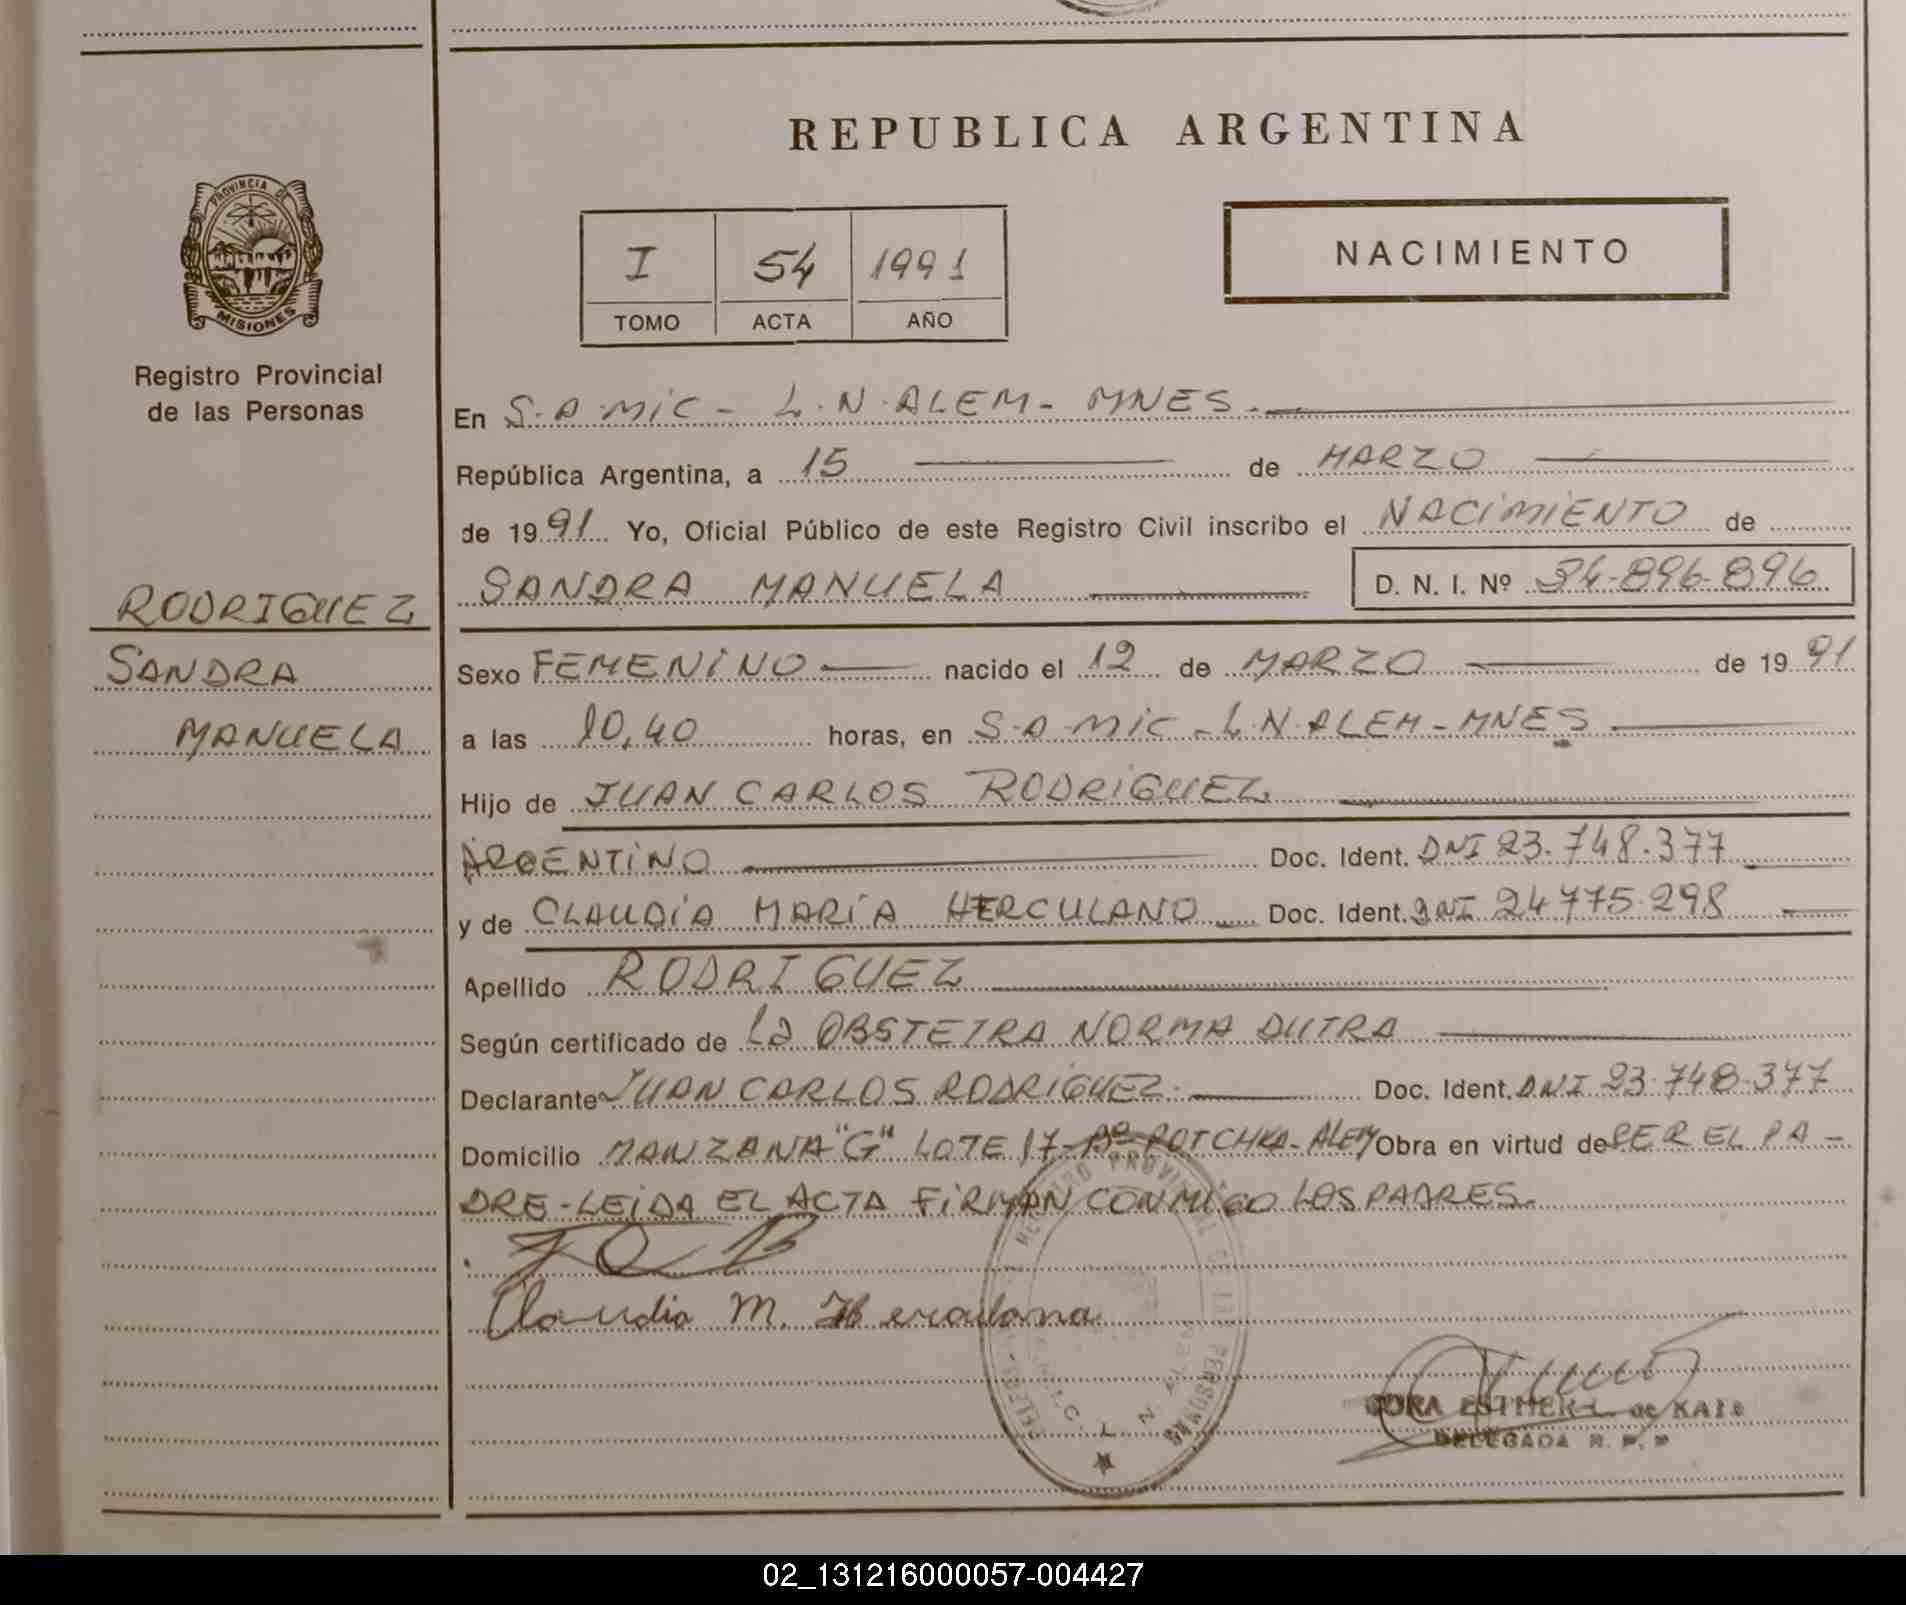 PROVINCIA DE
MISIONES
Registro Provincial
de las Personas
RODRIGUEZ
SANDRA
MANUELA
REPUBLICA ARGENTINA
I 54 1991
TOMO ACTA AÑO
NACIMIENTO
En S.A.MIC - L.N.ALEM - MNES.
República Argentina, a 15 de MARZO
de 1991 Yo, Oficial Público de este Registro Civil inscribo el NACIMIENTO de
SANDRA MANUELA D. N. I. Nº 34.896.896
Sexo FEMENINO nacido el 12 de MARZO de 1991
a las 10,40 horas, en S.A.MIC - L.N.ALEM - MNES
Hijo de JUAN CARLOS RODRIGUEZ
ARGENTINO Doc. Ident. DNI 23.748.377
y de CLAUDIA MARÍA HERCULANO Doc. Ident. DNI 24.775.298
Apellido RODRIGUEZ
Según certificado de La OBSTETRA NORMA DUTRA
Declarante JUAN CARLOS RODRIGUEZ. Doc. Ident. DNI 23.748.377
Domicilio MANZANA "G" LOTE 17 - Bº POTCHKA - ALEM Obra en virtud de SER EL PA-
DRE - LEIDA EL ACTA FIRMAN CONMIGO LOS PADRES.
Claudia M. Herculano
REGISTRO PROVINCIAL DE LAS PERSONAS
L. N.
DELEGADA R. P. P
02_131216000057-004427